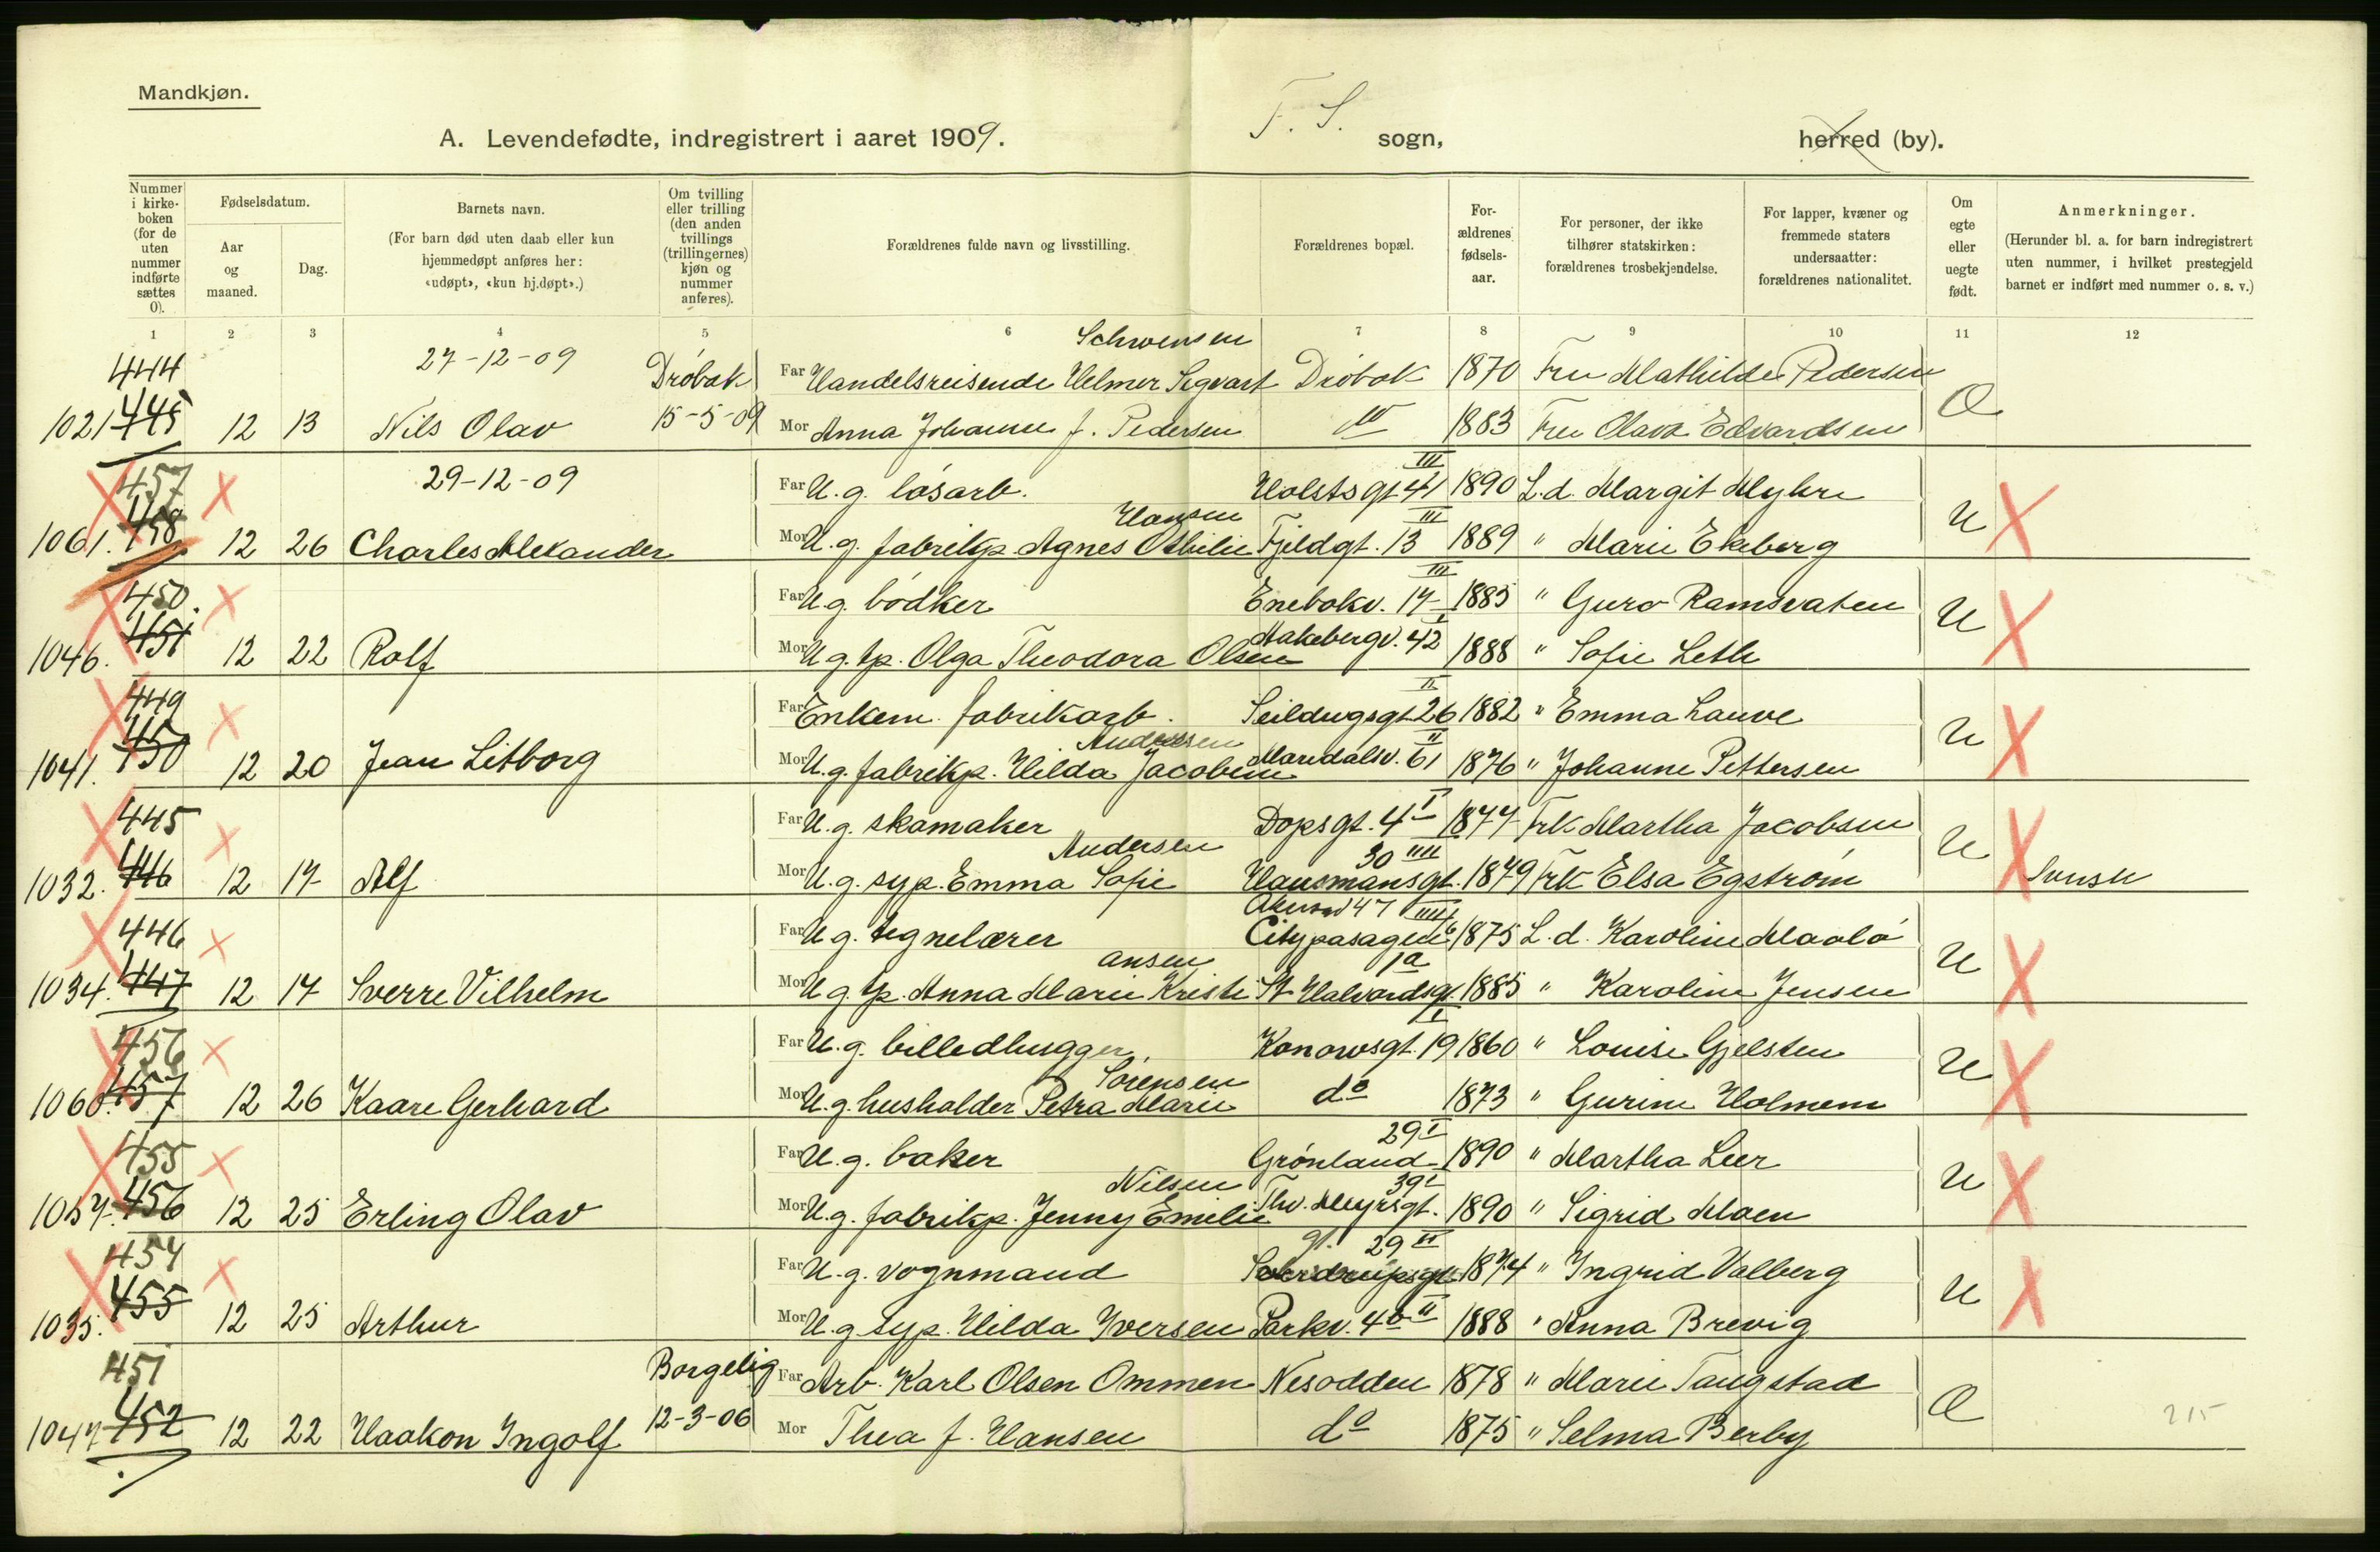 Mandkjøn.
A. Levendefødte, indregistrert i aaret 1909.
F. S. sogn,
herred (by).
Nummer i kirke-boken (for de uten nummer indførte sættes 0).
Fødselsdatum.
Aar og maaned.
Dag.
Barnets navn.
(For barn død uten daab eller kun hjemmedøpt anføres her: «udøpt», «kun hj.døpt».)
Om tvilling eller trilling (den anden tvillings (trillingernes) kjøn og nummer anføres).
Forældrenes fulde navn og livsstilling.
Forældrenes bopæl.
For-ældrenes fødsels-aar.
For personer, der ikke tilhører statskirken: forældrenes trosbekjendelse.
For lapper, kvæner og fremmede staters undersaatter: forældrenes nationalitet.
Om egte eller uegte født.
Anmerkninger.
(Herunder bl. a. for barn indregistrert uten nummer, i hvilket prestegjeld barnet er indført med nummer o. s. v.)
1 2 3 4 5 6 7 8 9 10 11 12
444 27-12-09 Drøbak Schwensen
Far Handelsreisende Helmer Sigvart Drøbak 1870 Fru Mathilde Pedersen
1021 445 12 13 Nils Olav 15-5-09 Mor Anna Johanne f. Pedersen 1883 Fru Olava Edvardsen
457 29-12-09 Far U. g. løsarb. Holstsgt 41 III 1890 L. d. Margit Myhre U
Hansen III
1061. 458 12 26 Charles Alexander Mor U. g. fabrikp. Agnes Othilie Fjeldgt. 13 1889 " Marie Ekeberg
450 Far U g. bødker Enebakv. 17 III 1885 " Guro Ramsvaten U
1046. 451 12 22 Rolf Mor U g. tp. Olga Theodora Olsen Aakebergv. 42 1888 " Sofie Leth
449 Far Enkem. fabrikarb. Seildugsgt. 26 II 1882 " Emma Lauve U
Andersen II
1041. 450 12 20 Jean Litborg Mor U. g. fabrikp. Hilda Jacobine Maridalsv. 61 1876 " Johanne Pettersen
445 Far U. g. skomaker Dopsgt. 4 I 1877 Frk Martha Jacobsen U
Andersen 30 IIII
1032. 446 12 17 Alf Mor U. g. syp. Emma Sofie Hausmansgt. 1879 Frk Elsa Egström Svensk
446 Akersv 47 IIII
Far U g. tegnelærer Citypasagen 1875 L. d. Karoline Maalø U
ansen 1a
1034. 447 12 17 Sverre Vilhelm Mor U g. tp. Anna Marie Kristi St Halvardsgt. 1885 " Karoline Jensen
456 Far U. g. billedhugger. Konowsgt. 19 I 1860 " Louise Gjelsten U
Sørensen
1060. 457 12 26 Kaare Gerhard Mor U. g. husholder Petra Marie do 1873 " Gurine Holmem
455 29 I
Far U. g. baker Grønland 1890 " Martha Lier U
Nilsen 39 I
1057. 456 12 25 Erling Olav Mor U. g. fabrikp. Jenny Emilie Thv. Meyrsgt. 1890 " Sigrid Moen
454 gt. 29 II
Far U. g. vognmand 1874 " Ingrid Valberg U
1035. 455 12 25 Arthur Mor U. g syp. Hilda Iversen Parkv. 4b II 1888 " Anna Brevig
451 Borgelig Far Arb. Karl Olsen Ommen Nesodden 1878 " Marie Tangstad
1047 452 12 22 Haakon Ingolf 12-3-06 Mor Thea f. Hansen do 1875 " Selma Berby
215